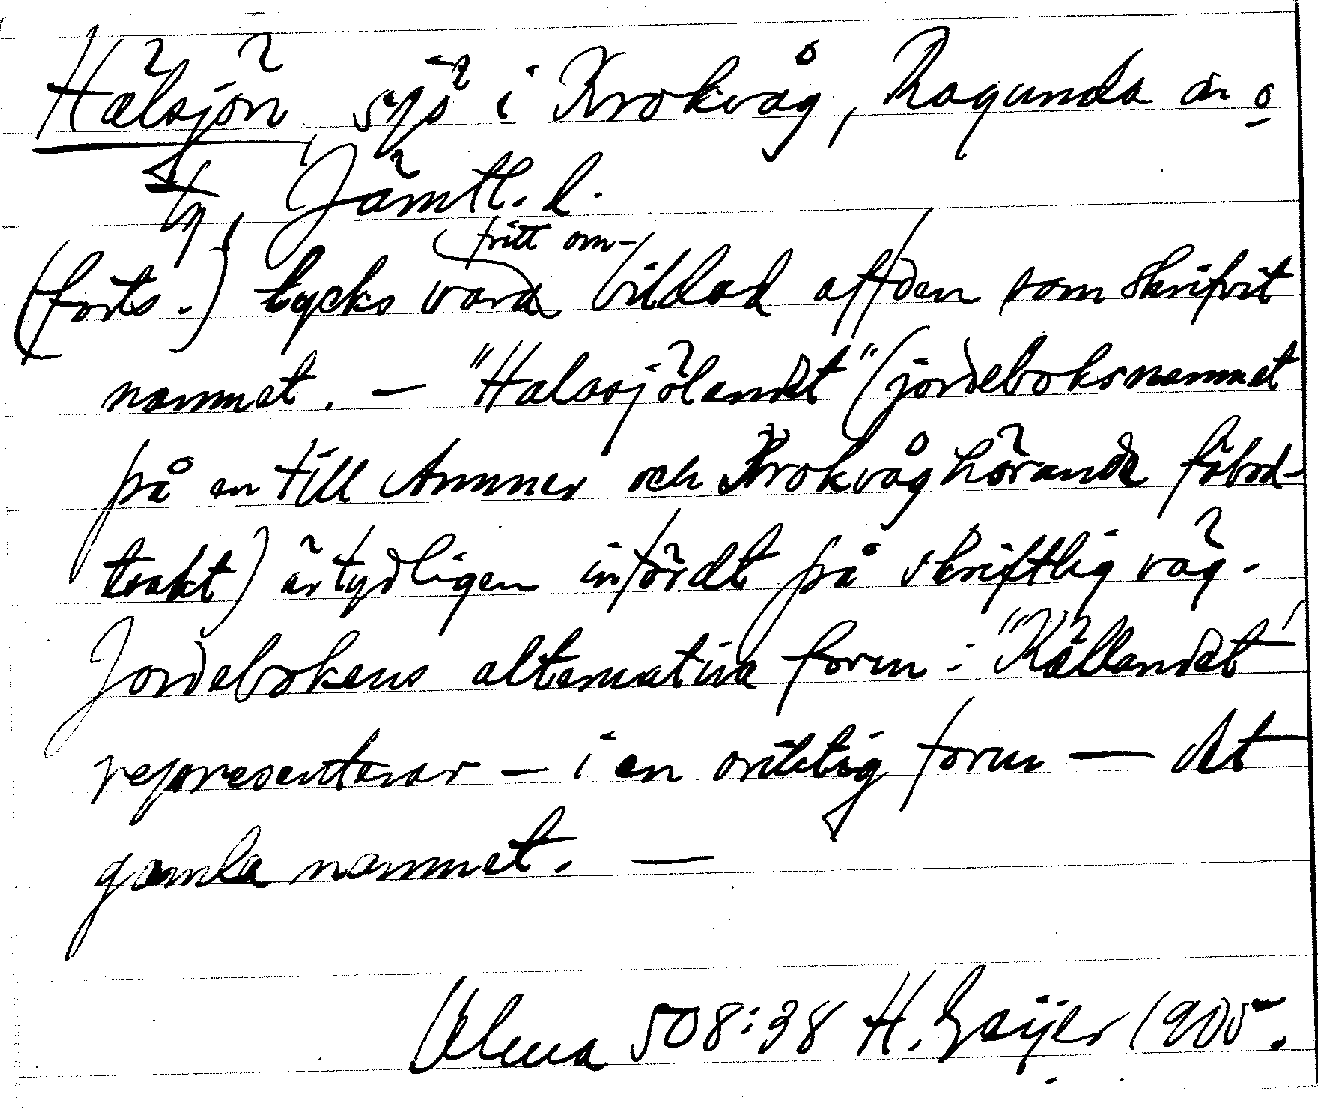 Hälsjön, sjö i Krokvåg, Ragunda sn o
tg, Jämtl. l.
(forts.) tycks vara fritt om-
bildad af den som skrifvit
namnet. — "Halasjölandet" (jordeboksnamnet
på en till Ammer och Krokvåg hörande fäbod-
trakt) är tydligen infördt på skriftlig väg.
Jordebokens alternativa form: "Källandet"
representerar – i en oriktig form — det
gamla namnet. —
Ulma 508:38 H. Geijer 1905.